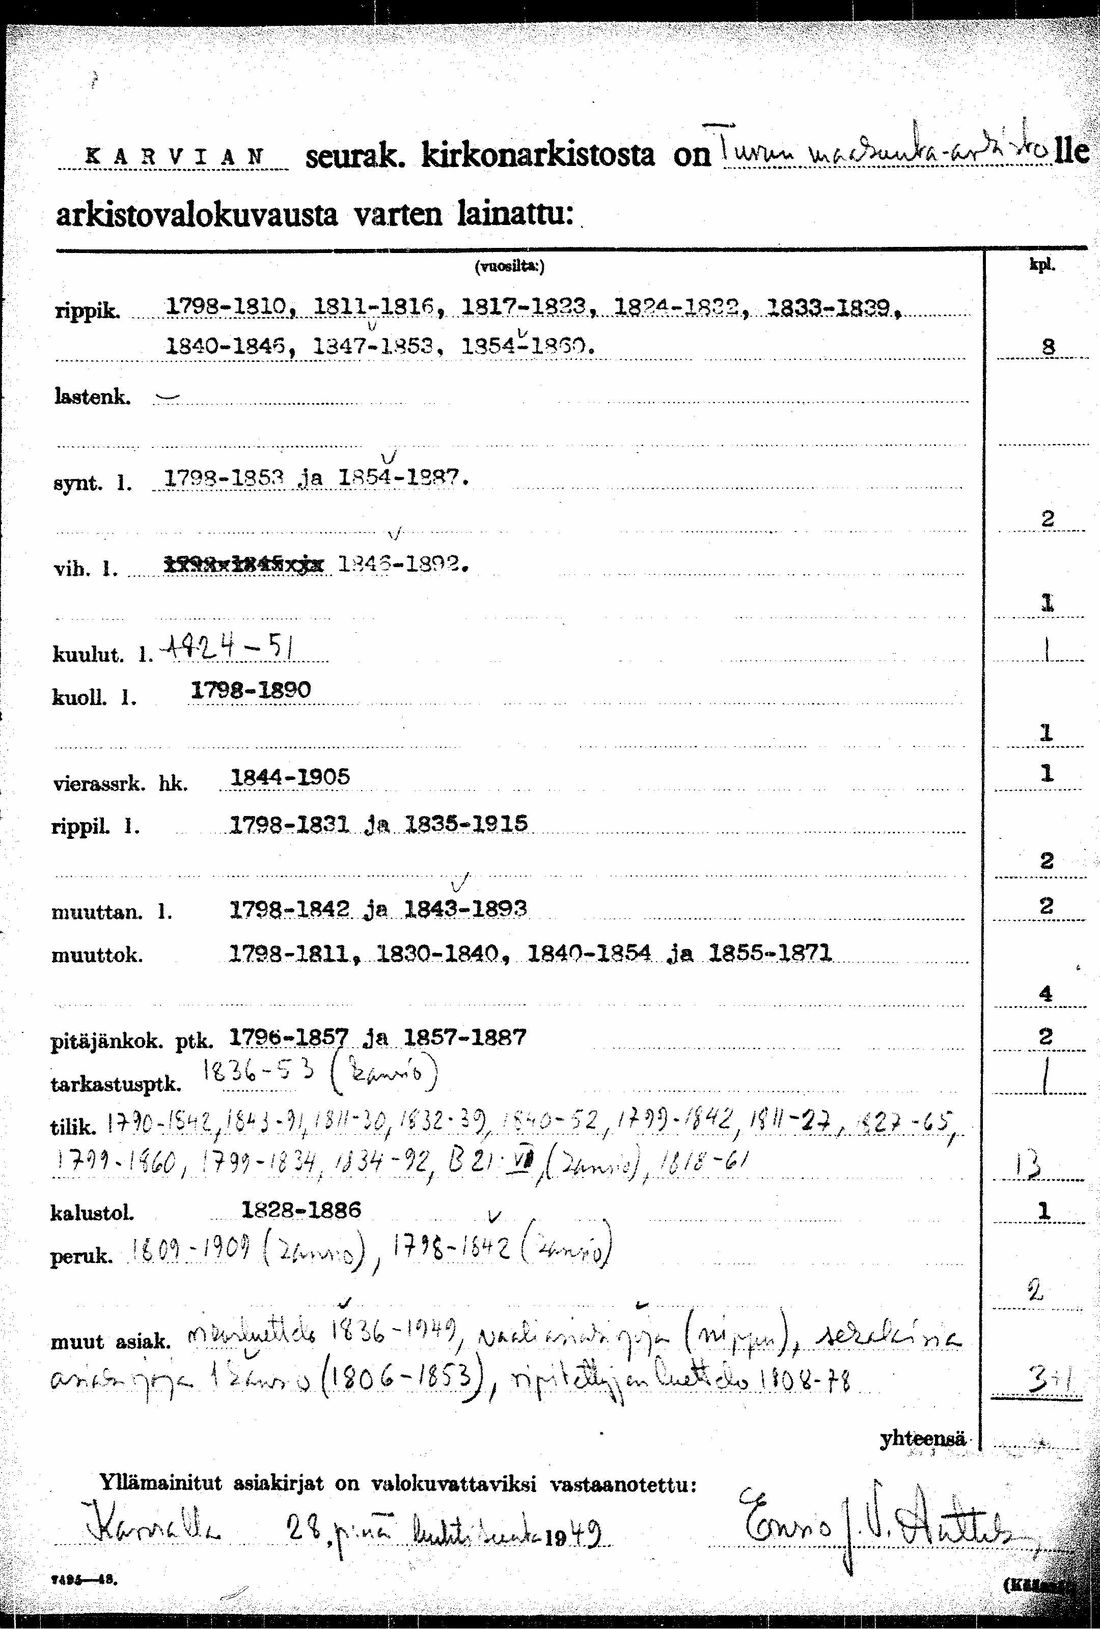 KARVIAN seurak. kirkonarkistosta on Turun maakunta-arkistolle
arkistovalokuvausta varten lainattu:
(vuosilta:) kpl.
rippik. 1798-1810, 1811-1816, 1817-1823, 1824-1832, 1833-1839,
1840-1846, 1847-1853, 1854-1860. 8
lastenk. —
synt. l. 1798-1853 ja 1854-1887.
2
vih. l. 1846-1892.
1
kuulut. l. 1824-51 1
kuoll. l. 1798-1890
1
vierassrk. hk. 1844-1905 1
rippil. l. 1798-1831 ja 1835-1915
2
muuttan. l. 1798-1842 ja 1843-1893 2
muuttok. 1798-1811, 1830-1840, 1840-1854 ja 1855-1871
4
pitäjänkok. ptk. 1796-1857 ja 1857-1887 2
tarkastusptk. 1836-53 (kansio) 1
tilik. 1790-1842, 1843-91, 1811-30, 1832-39, 1840-52, 1799-1842, 1811-27, 1827-65,
1799-1860, 1799-1834, 1834-92, B 21 (kansio), 1818-61 13
kalustol. 1828-1886 1
peruk. 1809-1909 (kansio), 1798-1842 (kansio)
2
muut asiak. 1836-1949, vaaliasiakirjoja (nippu), sekalaisia
asiakirjoja 1 kansio (1806-1853), ripitettyjen luettelo 1808-78 3+1
yhteensä
Yllämainitut asiakirjat on valokuvattaviksi vastaanotettu:
28 p:nä huhtikuuta 1949 J. V.
7495—48.